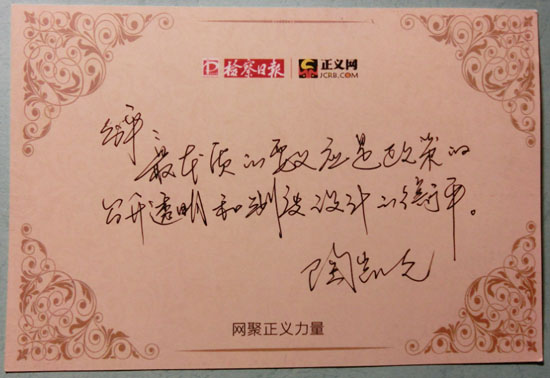 检察日报 正义网
JCRB.COM
公平:
最本质的要义应是政策的
公开透明和制度设计的衡平。
陶凯元
网聚正义力量